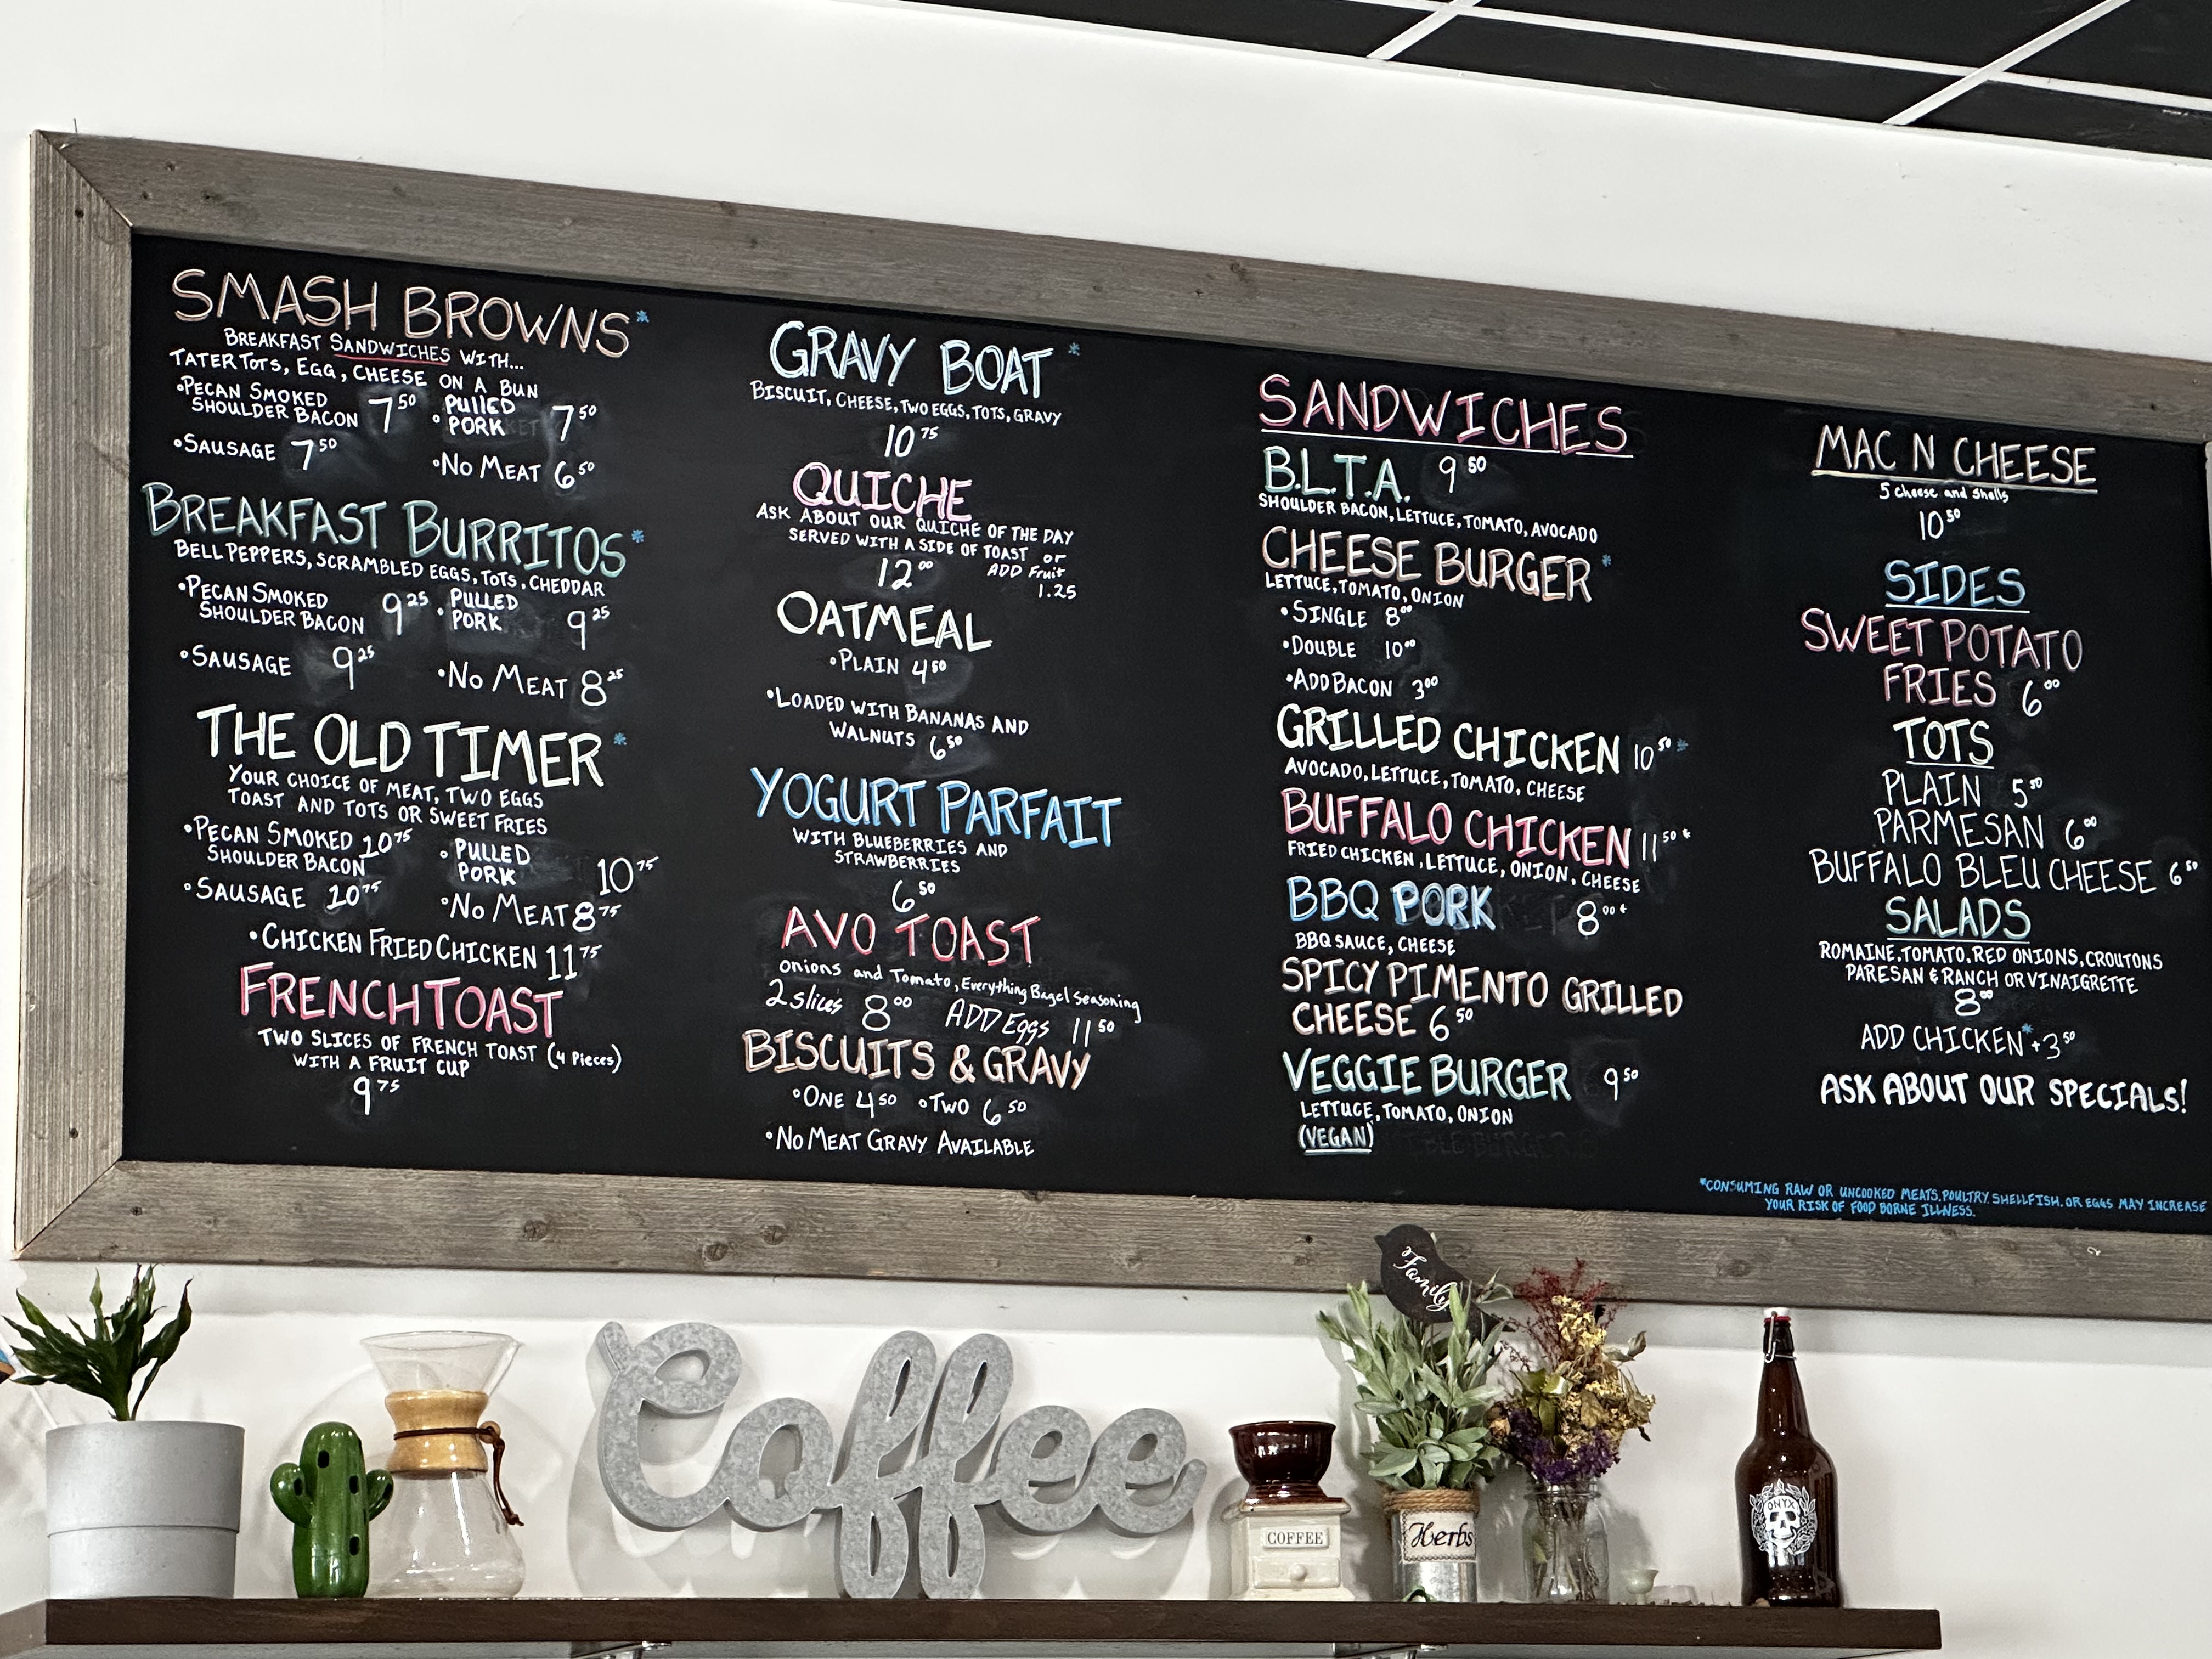 SMASH BROWNS*
BREAKFAST SANDWICHES WITH...
TATER TOTS, EGG, CHEESE ON A BUN
•PECAN SMOKED SHOULDER BACON 7.50
•PULLED PORK 7.50
•SAUSAGE 7.50
•NO MEAT 6.50
BREAKFAST BURRITOS*
BELL PEPPERS, SCRAMBLED EGGS, TOTS, CHEDDAR
•PECAN SMOKED SHOULDER BACON 9.25
•PULLED PORK 9.25
•SAUSAGE 9.25
•NO MEAT 8.25
THE OLD TIMER*
YOUR CHOICE OF MEAT, TWO EGGS
TOAST AND TOTS OR SWEET FRIES
•PECAN SMOKED SHOULDER BACON 10.75
•PULLED PORK 10.75
•SAUSAGE 10.75
•NO MEAT 8.75
•CHICKEN FRIED CHICKEN 11.75
FRENCH TOAST
TWO SLICES OF FRENCH TOAST (4 Pieces)
WITH A FRUIT CUP
9.75
GRAVY BOAT*
BISCUIT, CHEESE, TWO EGGS, TOTS, GRAVY
10.75
QUICHE
ASK ABOUT OUR QUICHE OF THE DAY
SERVED WITH A SIDE OF TOAST or
12.00 ADD Fruit
1.25
OATMEAL
•PLAIN 4.50
•LOADED WITH BANANAS AND
WALNUTS 6.50
YOGURT PARFAIT
WITH BLUEBERRIES AND
STRAWBERRIES
6.50
AVO TOAST
Onions and Tomato, Everything Bagel Seasoning
2 slices 8.00 ADD Eggs 11.50
BISCUITS & GRAVY
•ONE 4.50 •TWO 6.50
•NO MEAT GRAVY AVAILABLE
SANDWICHES
B.L.T.A. 9.50
SHOULDER BACON, LETTUCE, TOMATO, AVOCADO
CHEESE BURGER*
LETTUCE, TOMATO, ONION
•SINGLE 8.00
•DOUBLE 10.00
•ADD BACON 3.00
GRILLED CHICKEN 10.50*
AVOCADO, LETTUCE, TOMATO, CHEESE
BUFFALO CHICKEN 11.50*
FRIED CHICKEN, LETTUCE, ONION, CHEESE
BBQ PORK 8.00*
BBQ SAUCE, CHEESE
SPICY PIMENTO GRILLED
CHEESE 6.50
VEGGIE BURGER 9.50
LETTUCE, TOMATO, ONION
(VEGAN)
MAC N CHEESE
5 cheese and shells
10.50
SIDES
SWEET POTATO
FRIES 6.00
TOTS
PLAIN 5.50
PARMESAN 6.00
BUFFALO BLEU CHEESE 6.50
SALADS
ROMAINE, TOMATO, RED ONIONS, CROUTONS
PARESAN & RANCH OR VINAIGRETTE
8.00
ADD CHICKEN* +3.50
ASK ABOUT OUR SPECIALS!
*CONSUMING RAW OR UNCOOKED MEATS, POULTRY, SHELLFISH, OR EGGS MAY INCREASE
YOUR RISK OF FOOD BORNE ILLNESS.
Family
Coffee
COFFEE
Herbs
ONYX